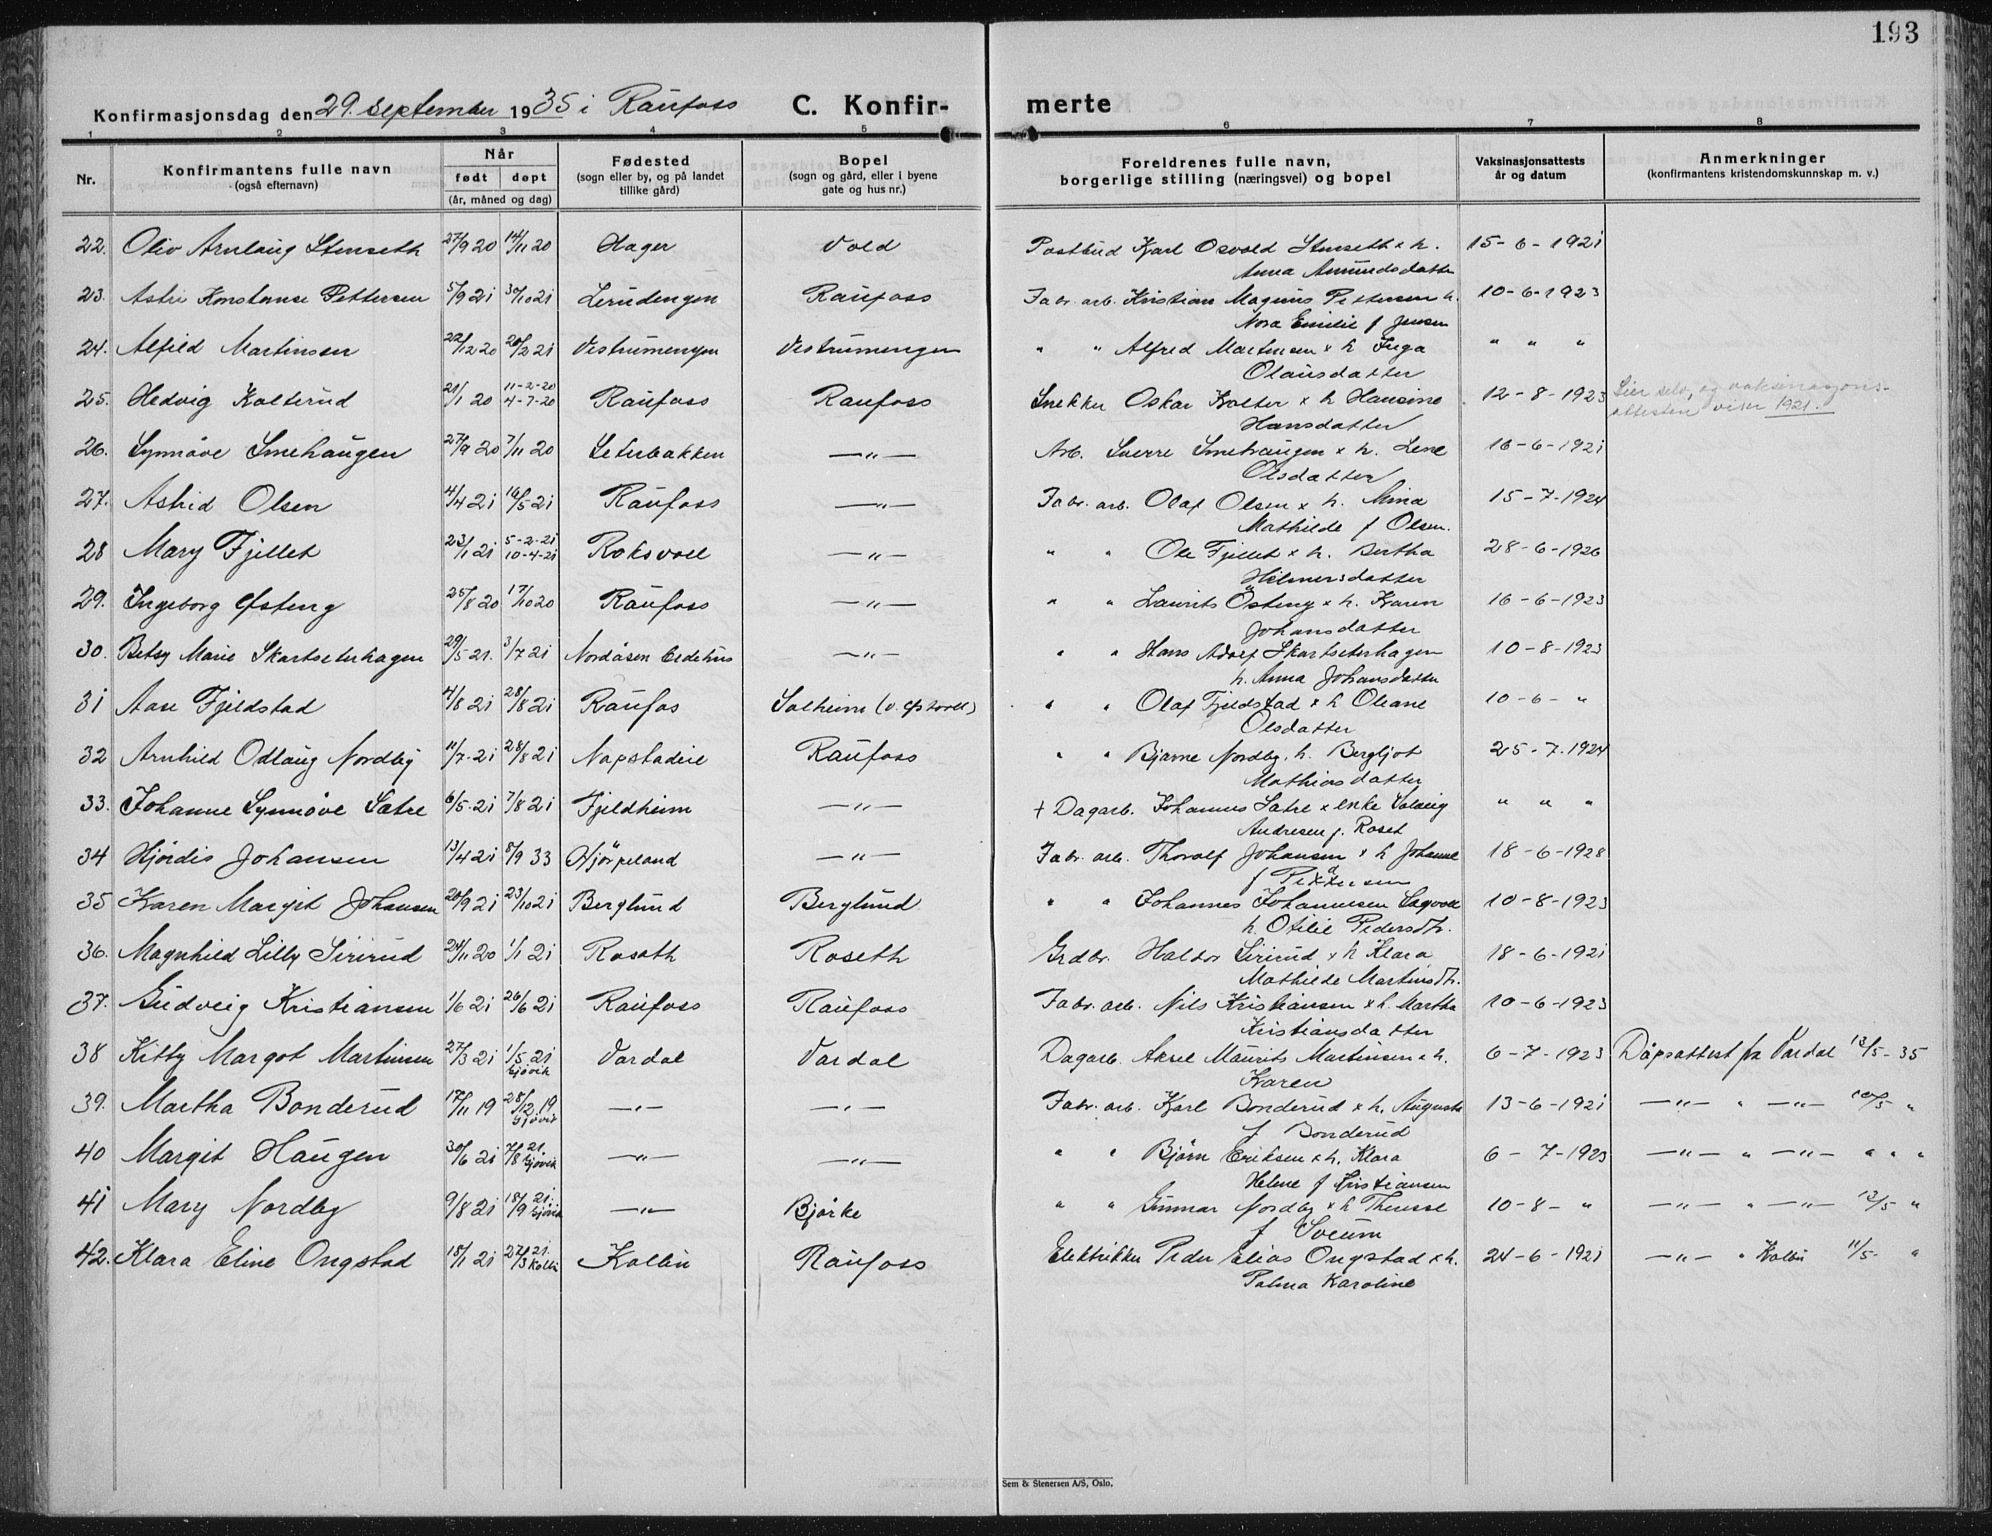 193
Konfirmasjonsdag den 29. september 1935 i Raufoss C. Konfirmerte
1 2 3 4 5 6 7 8
Nr. Konfirmantens fulle navn (også efternavn) Når født døpt (år, måned og dag) Fødested (sogn eller by, og på landet tillike gård) Bopel (sogn og gård, eller i byene gate og hus nr.) Foreldrenes fulle navn, borgerlige stilling (næringsvei) og bopel Vaksinasjonsattests år og datum Anmerkninger (konfirmantens kristendomskunnskap m. v.)
22. Oliv Arnlaug Stenseth 27/9 20 14/11 20 Hager Vold Postbud Karl Osvald Stenseth x h. 15-6-1921
Anna Amundsdatter
23. Astri Konstanse Pettersen 5/9 21 30/10 21 Lerudengen Raufoss Fabr. arb. Kristian Magnus Pettersen h. 10-6-1923
Nora Emilie f Jensen
24. Alfild Martinsen 22/12 20 20/2 21 Vestrumengen Vestrumengen " " Alfred Martinsen x h Inga " " "
Olausdatter
25. Hedvig Kolterud 21/1 20 11-2-20 4-7-20 Raufoss Raufoss Snekker Oskar Kolter x h Hansine 12-8-1923 Sier selv, og vaksinasjons-
Hansdatter attesten viser 1921.
26. Synnøve Smehaugen 27/9 20 7/11 20 Seterbakken —"— Arb. Sverre Smehaugen x h. Lene 16-6-1921
Olsdatter
27. Astrid Olsen 4/4 21 16/5 21 Raufoss —"— Fabr. arb. Olaf Olsen x h. Mina 15-7-1924
Mathilde f Olsen.
28 Mary Fjellet 23/1 21 5-2-21 10-4-21 Roksvoll —"— " " Ole Fjellet x h. Bertha 28-6-1926
Hilmersdatter
29. Ingeborg Østeng 25/8 20 17/10 20 Raufoss —"— " " Laurits Östeng x h. Karen 16-6-1923
Johansdatter
30. Betsy Marie Skartseterhagen 29/5 21. 3/7 21 Nordåsen Eidehus —"— " " Hans Adolf Skartseterhagen 10-8-1923
h. Anna Johansdatter
31 Aase Fjeldstad 4/8 21 28/8 21 Raufos Solheim " " Olaf Fjeldstad x h Oleane 10-6- "
Olsdatter
32 Arnhild Odlaug Nordby 11/7-21 28/8 21 Nøpstadeie Raufoss " " Bjarne Nordby, h. Bergljot 25-7.1924
Mathiasdatter
33. Johanne Synnøve Sætre 6/5-21 7/8 21 Fjeldheim —"— + Dagarb. Johannes Sætre x enke Solveig " " "
Andresen f. Roset
34 Hjørdis Johansen 13/4 21 8/9 33 Hjørpeland —"— Fabr. arb. Thoralf Johansen x h Johanne 18-6-1928
f Pettersen
35 Karen Margit Johansen 20/9 21 23/10 21 Berglund Berglund " " Johannes Johannesen Sagvoll 10-8-1923
h. Otilie Pedersdtr.
36. Magnhild Lilly Sirirud 24/11 20 1/1 21 Roseth Roseth Grdbr. Haldor Sirirud x h Klara 18-6-1921
Mathilde Martinsdtr.
37. Gudveig Kristiansen 1/6 21 26/6 21 Raufoss Raufoss Fabr. arb. Nils Kristiansen x h. Martha 10-6-1923
Kristiansdatter
38 Kitty Margot Martinsen 27/3 21 1/5 21 Gjøvik Vardal Vardal Dagarb. Aksel Maurits Martinsen x h. 6-7-1923 Dåpsattest fra Vardal 13/5-35
Karen
39. Martha Bonderud 17/11 19 28/12 19 Gjøvik —"— —"— Fabr. arb. Karl Bonderud x h. Augusta 13-6-1921 —"— " —"— "
f Bonderud
40 Margit Haugen 30/6 21 7/8 21. Gjøvik —"— —"— " " Bjørn Eriksen x h. Klara 6-7-1923 —"— " —"— " " "
Helene f Kristiansen
41 Mary Nordby 9/8 21 18/9 21. Gjøvik —"— Bjørke " " Gunnar Nordby x h Therese 10-8- " —"— " —"— 13/5 "
f Sveum
42. Klara Eline Ongstad 18/1 21 27/3 21. Kolbu Kolbu Raufoss Elektriker Peder Elias Ongstad x h. 24-6-1921 —"— " Kolbu 11/5- "
Palma Karoline
Sem & Stenersen A/S, Oslo.